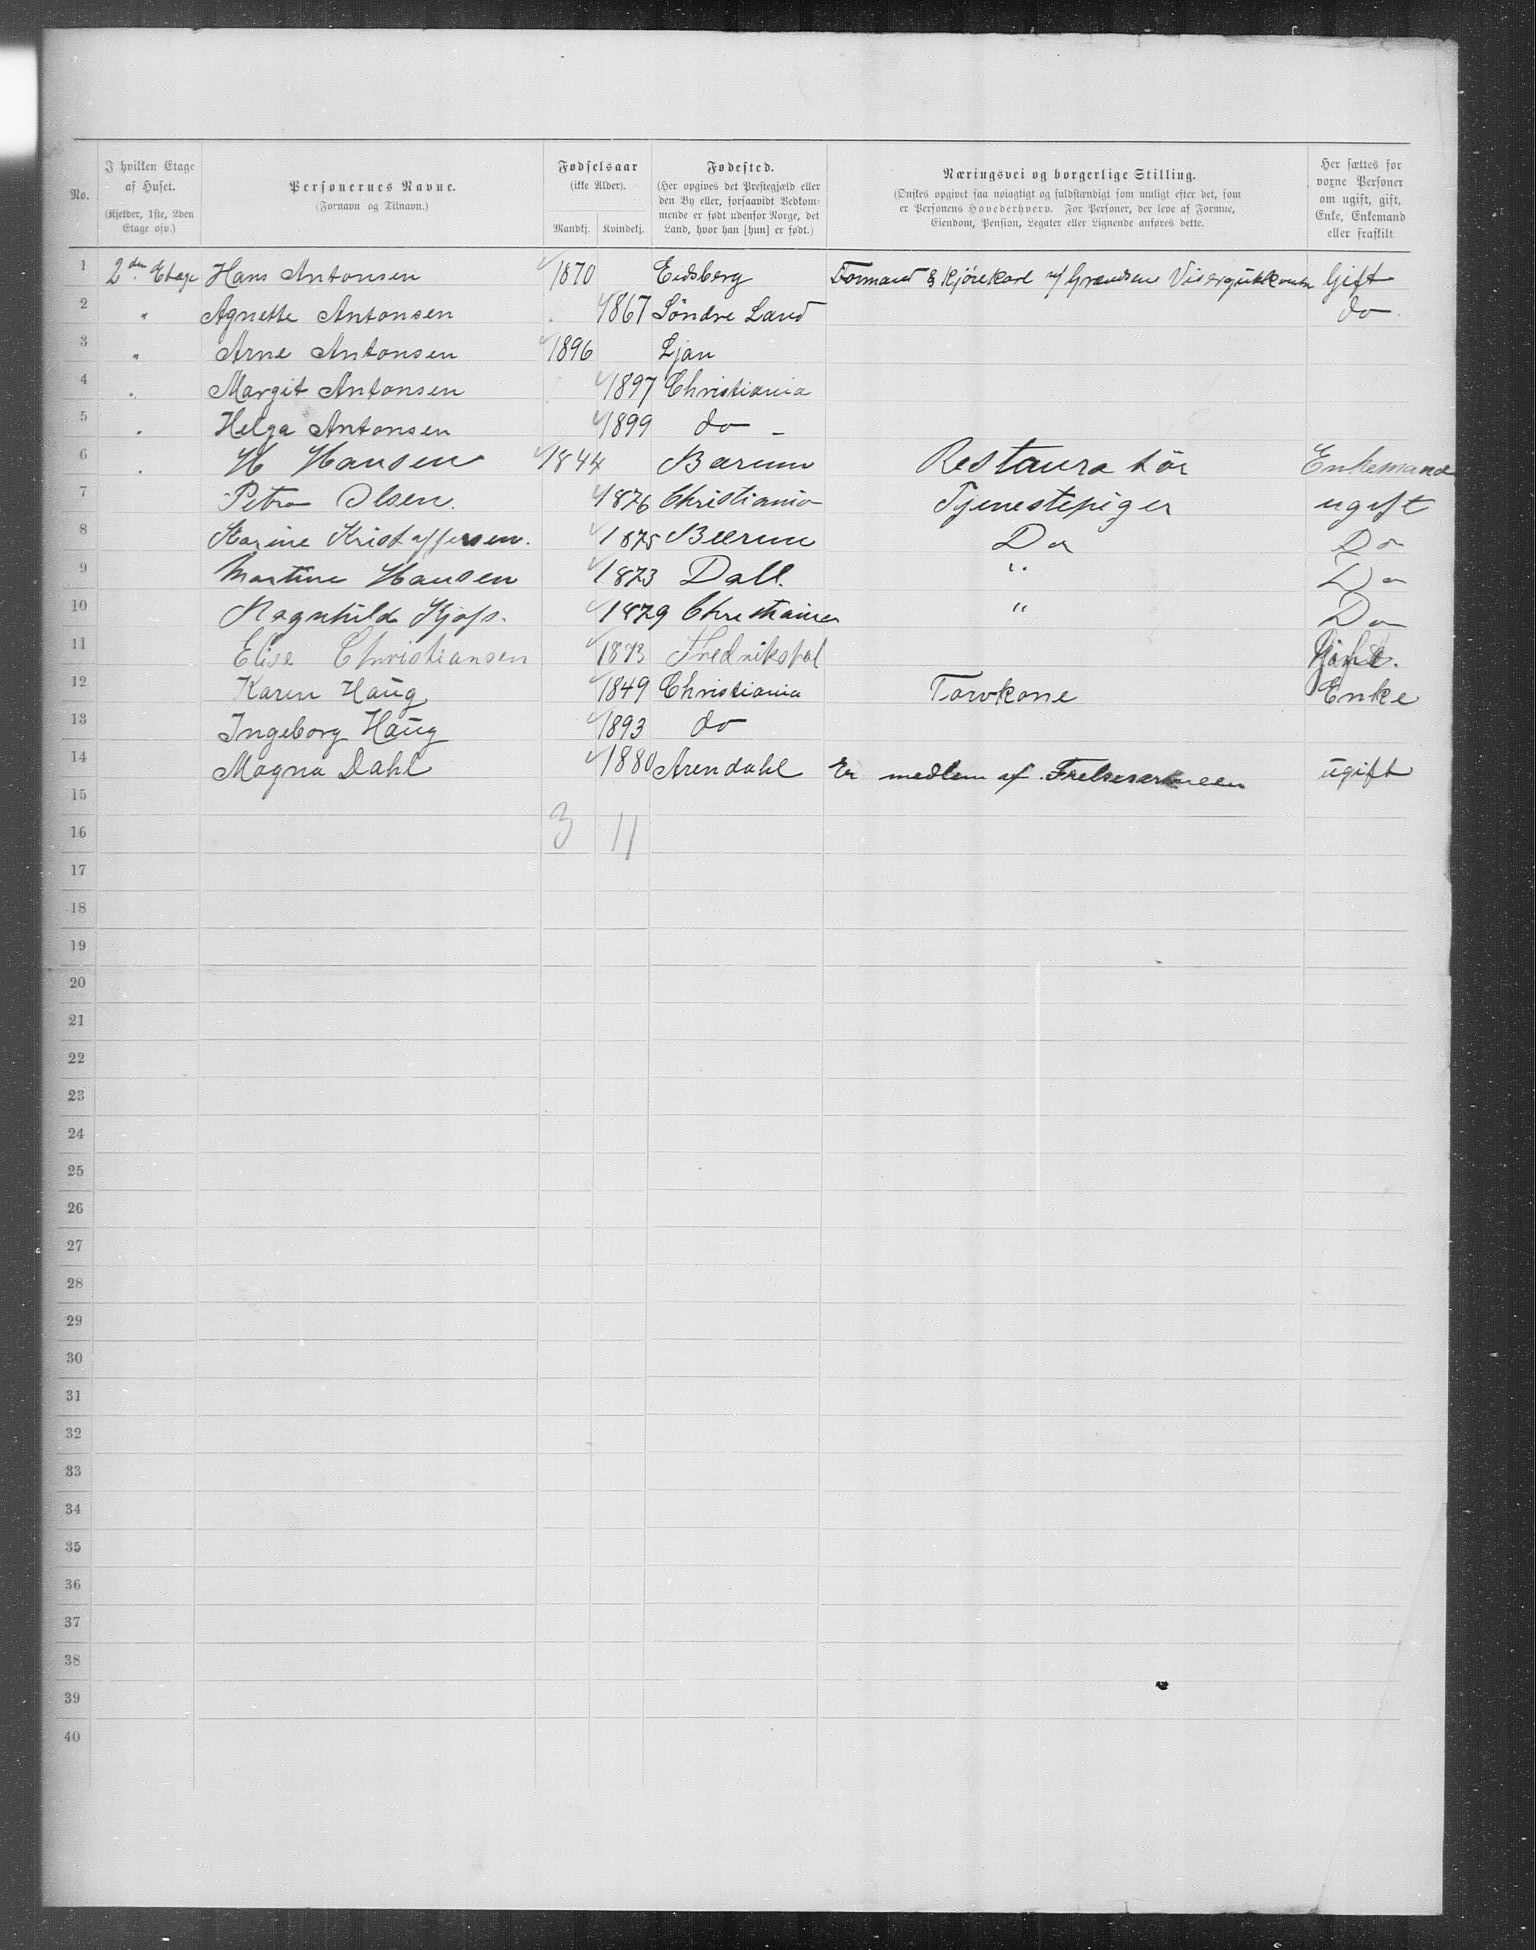 No.
I hvilken Etage af Huset. (Kjelder, 1ste, 2den Etage osv.)
Personernes Navne. (Fornavn og Tilnavn.)
Fødselsaar (ikke Alder). Mandkj. Kvindekj.
Fødested. (Her opgives det Prestegjæld eller den By eller, forsaavidt Vedkommende er født udenfor Norge, det Land, hvor han [hun] er født.)
Næringsvei og borgerlige Stilling. (Ønskes opgivet saa nøiagtigt og fuldstændigt som muligt efter det, som er Personens Hovederhverv. For Personer, der leve af Formue, Eiendom, Pension, Legater eller Lignende anføres dette.
Her sættes for voxne Personer om ugift, gift, Enke, Enkemand eller fraskilt
1 2den Etage Hans Antonsen 1870 Eidsberg Formand & Kjørekarl v/ Grændsen Gift
2 " Agnette Antonsen 1867 Søndre Land do
3 " Arne Antonsen 1896 Ljan
4 " Margit Antonsen 1897 Christiania
5 " Helga Antonsen 1899 do -
6 " H Hansen 1844 Bærum Restauratør Enkemand
7 Petra Olsen. 1876 Christiania Tjenestepiger ugift
8 Karine Kristoffersen. 1875 Bærum Do Do
9 Martine Hansen 1873 Dall. " Do
10 Ragnhild 1879 Christiania " Do
11 Elise Christiansen 1873 Fredrikshal
12 Karen Haug 1849 Christiania Torvkone Enke
13 Ingeborg Haug 1893 do
14 Magna Dahl 1880 Arendahl Er medlem af Frelsesarmeen ugift
15
16 3 11
17
18
19
20
21
22
23
24
25
26
27
28
29
30
31
32
33
34
35
36
37
38
39
40